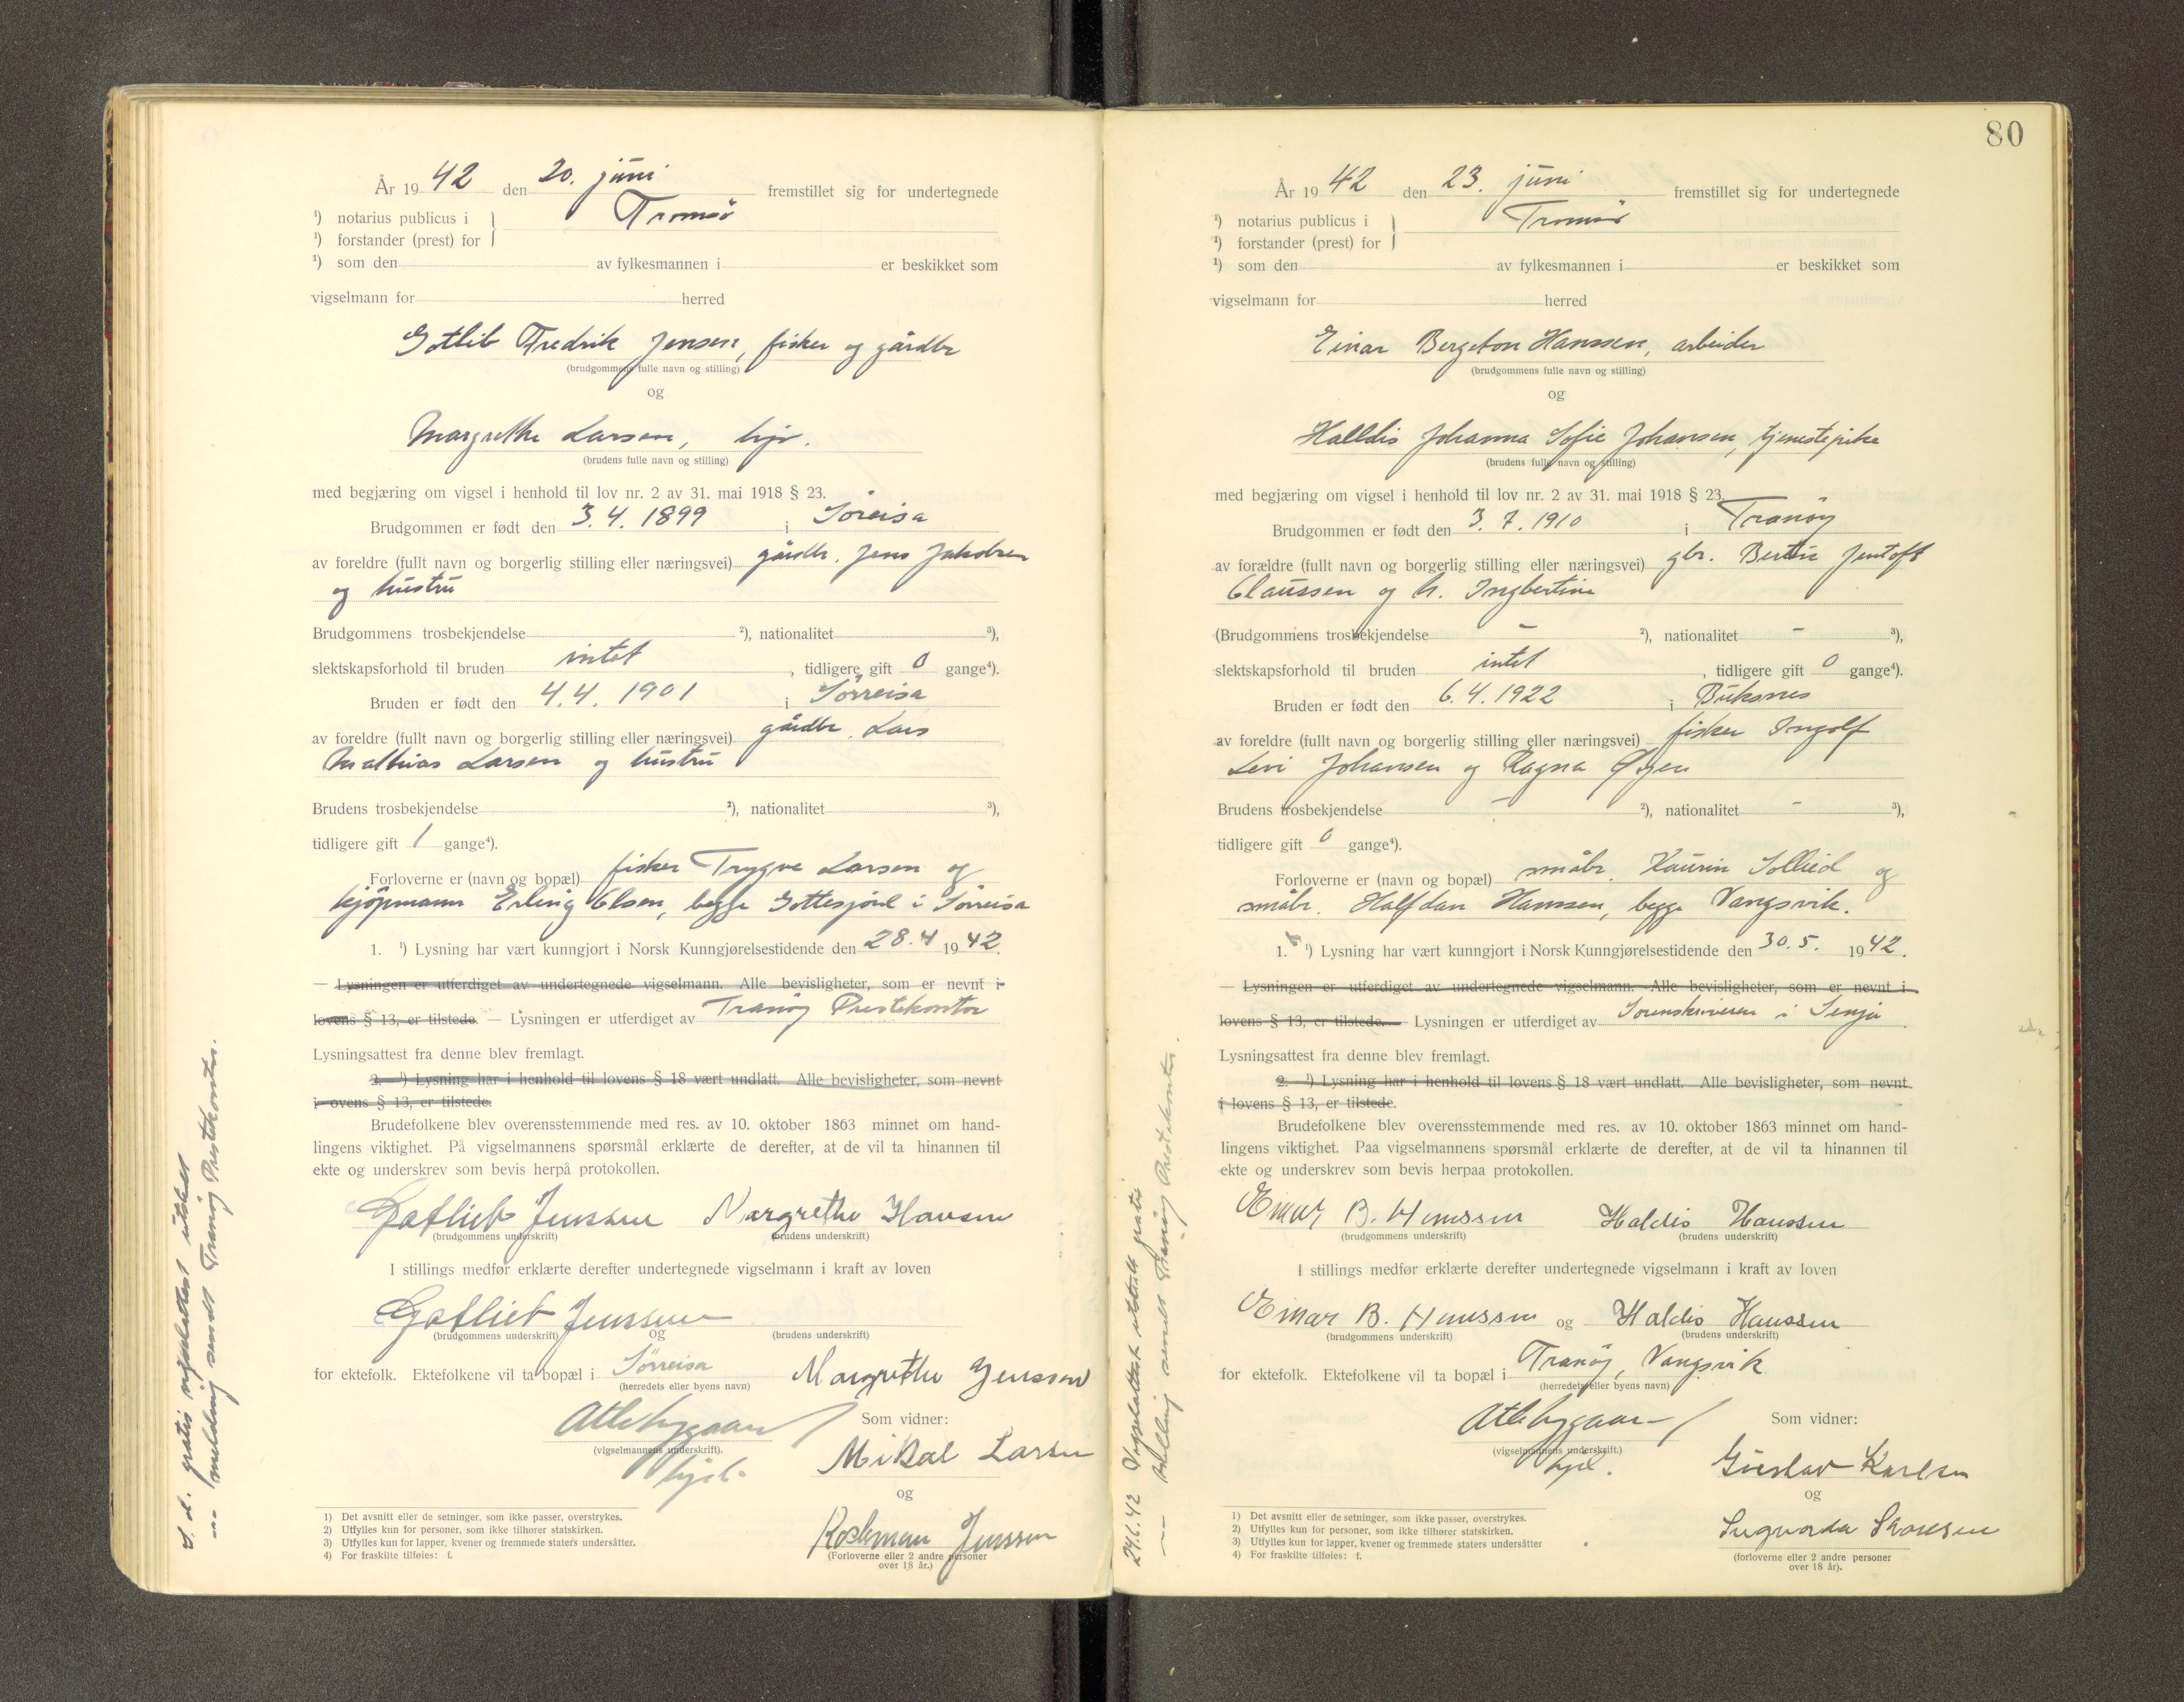 År 19 42 den 20. juni fremstillet sig for undertegnede
¹) notarius publicus i
¹) forstander (prest) for
Tromsö
¹) som den av fylkesmannen i er beskikket som
vigselmann for herred
Gotlib Fredrik Jensen, fisker og gårdbr
(brudgommens fulle navn og stilling)
og
Margrethe Larsen,
(brudens fulle navn og stilling)
med begjæring om vigsel i henhold til lov nr. 2 av 31. mai 1918 § 23.
Brudgommen er født den 3.4.1899 i Söreisa
av foreldre (fullt navn og borgerlig stilling eller næringsvei) gårdbr. Jens Jakobsen
og hustru
Brudgommens trosbekjendelse ²), nationalitet ³),
slektskapsforhold til bruden intet, tidligere gift 0 gange⁴).
Bruden er født den 4.4.1901 i Sörreisa
av foreldre (fullt navn og borgerlig stilling eller næringsvei) gårdbr. Lars
Mathias Larsen og hustru
Brudens trosbekjendelse ²), nationalitet ³),
tidligere gift 1 gange⁴).
Forloverne er (navn og bopæl) fisker Trygve Larsen og
kjöpmann Erling Olsen, begge Gottesjord i Sörreisa
1. ¹) Lysning har vært kunngjort i Norsk Kunngjørelsestidende den 28.4 1942.
— Lysningen er utferdiget av undertegnede vigselmann. Alle bevisligheter, som er nevnt i
lovens § 13, er tilstede. — Lysningen er utferdiget av Tranöy Prestekontor
Lysningsattest fra denne blev fremlagt.
2. ¹) Lysning har i henhold til lovens § 18 vært undlatt. Alle bevisligheter, som nevnt
i ovens § 13, er tilstede.
Brudefolkene blev overensstemmende med res. av 10. oktober 1863 minnet om hand-
lingens viktighet. På vigselmannens spørsmål erklærte de derefter, at de vil ta hinannen til
ekte og underskrev som bevis herpå protokollen.
Gotlieb Jenssen Margrethe Hansen
(brudgommens underskrift) (brudens underskrift)
I stillings medfør erklærte derefter undertegnede vigselmann i kraft av loven
Gotlieb Jenssen
(brudgommens underskrift) og (brudens underskrift)
for ektefolk. Ektefolkene vil ta bopæl i Sörreisa Margrethe Jenssen
(herredets eller byens navn)
Som vidner:
(vigselmannens underskrift).
Mikal Larsen
og
Jenssen
(Forloverne eller 2 andre personer
over 18 år.)
1) Det avsnitt eller de setninger, som ikke passer, overstrykes.
2) Utfylles kun for personer, som ikke tilhører statskirken.
3) Utfylles kun for lapper, kvener og fremmede staters undersåtter.
4) For fraskilte tilføies: f.
S. d. gratis vigselattest utstedt
—"— melding sendt Tranöy Prestekontor.
80
År 19 42 den 23. juni fremstillet sig for undertegnede
¹) notarius publicus i
¹) forstander (prest) for
Tromsö
¹) som den av fylkesmannen i er beskikket som
vigselmann for herred
Einar Bergeton Hanssen, arbeider
(brudgommens fulle navn og stilling)
og
Halldis Johanna Sofie Johansen, tjenestepike
(brudens fulle navn og stilling)
med begjæring om vigsel i henhold til lov nr. 2 av 31. mai 1918 § 23.
Brudgommen er født den 3.7.1910 i Tranöy
av forældre (fullt navn og borgerlig stilling eller næringsvei) gbr. Jentoft
Claussen og h. Ingbertine
(Brudgommens trosbekjendelse – ²), nationalitet – ³),
slektskapsforhold til bruden intet, tidligere gift 0 gange⁴).
Bruden er født den 6.4.1922 i Buksnes
av foreldre (fullt navn og borgerlig stilling eller næringsvei) fisker Ingolf
Levi Johansen og Ragna
Brudens trosbekjendelse – ²), nationalitet – ³),
tidligere gift 0 gange⁴).
Forloverne er (navn og bopæl) småbr. Kaurin Sollied og
småbr. Halfdan Hanssen, begge Vangsvik.
1. ¹) Lysning har vært kunngjort i Norsk Kunngjørelsestidende den 30.5. 1942.
— Lysningen er utferdiget av undertegnede vigselmann. Alle bevisligheter, som er nevnt i
lovens § 13, er tilstede. — Lysningen er utferdiget av Sorenskriveren i Senja
Lysningsattest fra denne blev fremlagt.
2. ¹) Lysning har i henhold til lovens § 18 vært undlatt. Alle bevisligheter, som nevnt
i lovens § 13, er tilstede.
Brudefolkene blev overensstemmende med res. av 10. oktober 1863 minnet om hand-
lingens viktighet. Paa vigselmannens spørsmål erklærte de derefter, at de vil ta hinannen til
ekte og underskrev som bevis herpaa protokollen.
Einar B. Hanssen Haldis Hanssen
(brudgommens underskrift) (brudens underskrift)
I stillings medfør erklærte derefter undertegnede vigselmann i kraft av loven
Einar B. Hanssen og Haldis Hanssen
(brudgommens underskrift) (brudens underskrift)
for ektefolk. Ektefolkene vil ta bopæl i Tranöy, Vangsvik
(herredets eller byens navn)
Som vidner:
(vigselmannens underskrift.)
Gustav Karlsen
og
(forloverne eller 2 andre personer
over 18 år).
1) Det avsnitt eller de setninger, som ikke passer, overstrykes.
2) Utfylles kun for personer, som ikke tilhører statskirken.
3) Utfylles kun for lapper, kvener og fremmede staters undersåtter
4) For fraskilte tilføies: f.
24.6.42 Vigselattest utstedt gratis
—"— melding sendt Tranöy Prestekontor.